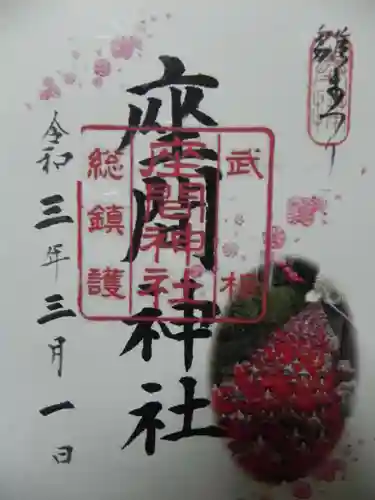 雛まつり
座間神社
武相
座間神社
総鎮護
令和三年三月一日